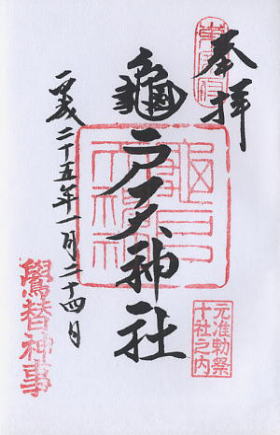 奉拝
龜戸天神社
平成二十五年一月二十四日
元准勅祭
十社之内
鷽替神事